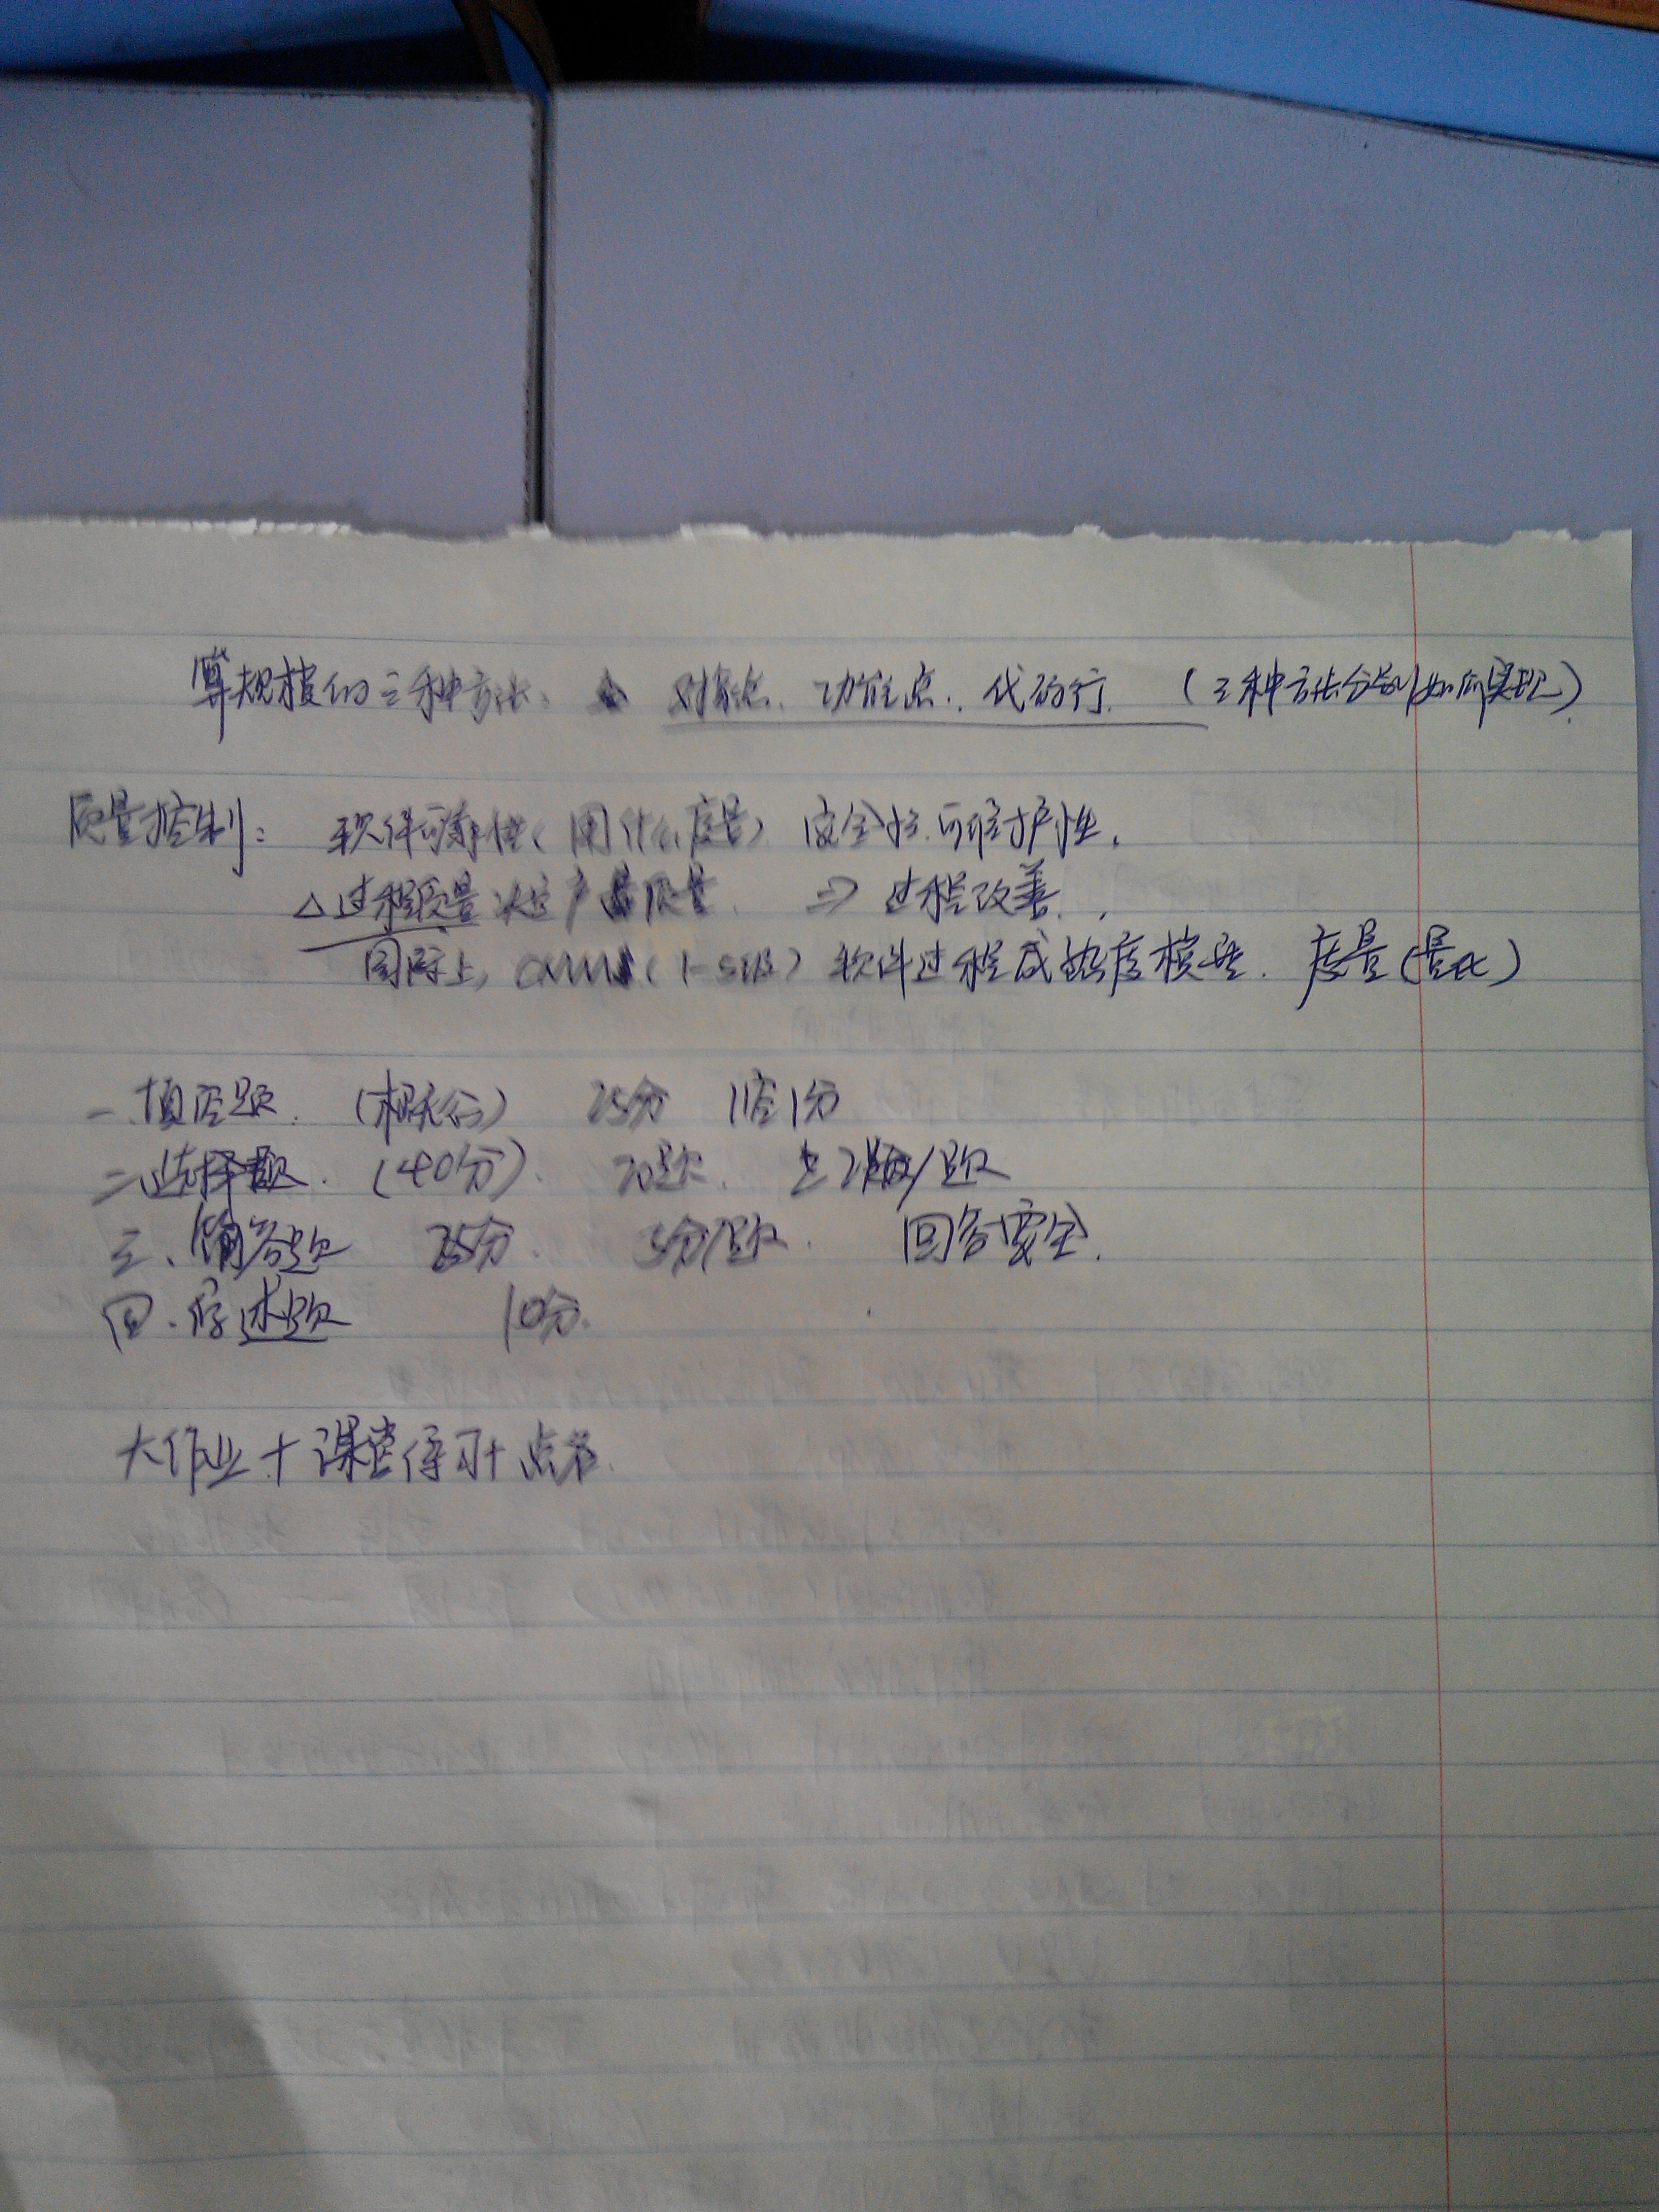 算规模的三种方法: 对象点、功能点、代码行. (三种方法分别如何实现).
质量控制: 软件可靠性(用什么度量) 安全性.可维护性.
△过程质量决定产品质量. ⇒ 过程改善.
国际上, CMM (1-5级) 软件过程成熟度模型. 度量(量化)
一.填空题. (概念) 25分 1空1分
二.选择题. (40分). 20题. 2分/题
三、简答题 25分. 5分/题. 回答要全.
四.论述题 10分.
大作业+课堂练习+点名.